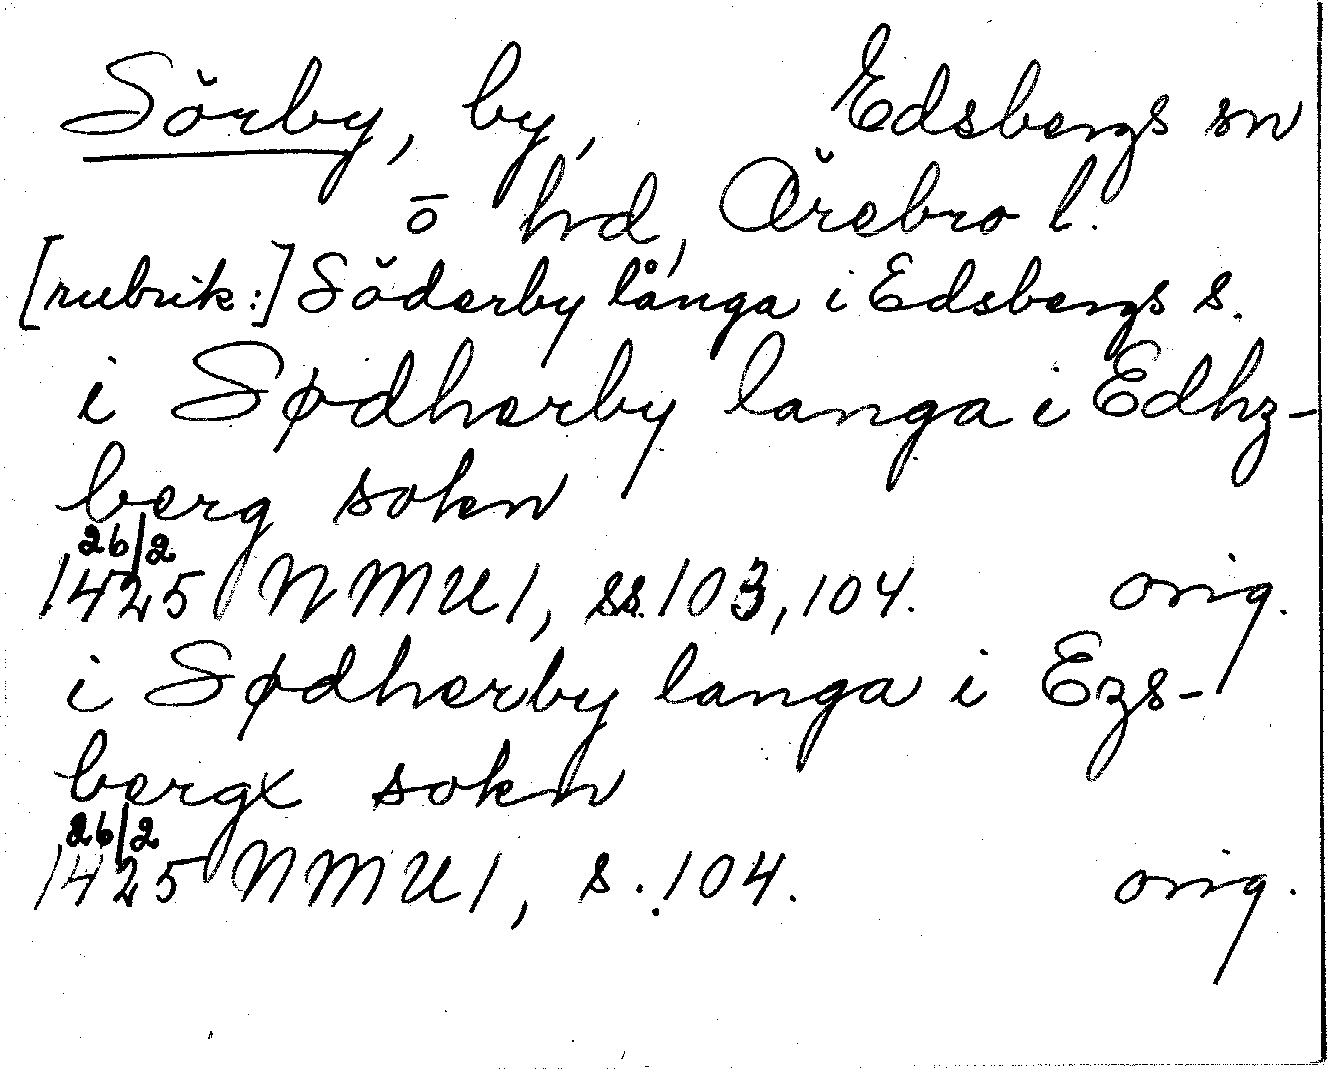 Sörby, by, Edsbergs sn
ō hd, Örebro l.
[rubrik:] Söderby långa i Edsbergs s.
i Sødherby langa i Edhz-
berg sokn
26/2
1425 NMU 1, ss. 103, 104. orig.
i Sødherby langa i Ezs-
bergx sokn
26/2
1425 NMU 1, s. 104. orig.